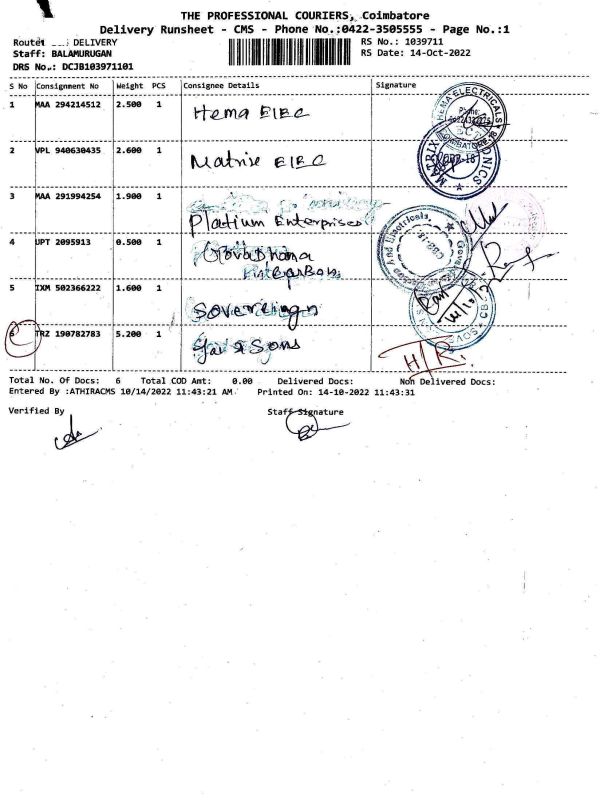 THE PROFESSIONAL COURIERS, Coimbatore
Delivery Runsheet - CMS - Phone No.:0422-3505555 - Page No.:1
Route: DELIVERY
RS No.: 1039711
Staff: BALAMURUGAN
RS Date: 14-Oct-2022
DRS No.: DCJB103971101
S No Consignment No Weight PCS Consignee Details Signature
1 MAA 294214512 2.500 1 Hema Elec
HEMA ELECTRICALS
2 VPL 940630435 2.600 1 Matrix Elec
MATRIX
3 MAA 291994254 1.900 1
Platium Enterprises
4 UPT 2095913 0.500 1 Govadhana
And Electricals,
5 IXM 502366222 1.600 1 Sovereingn
6 TRZ 190782783 5.200 1 Jai & Sons
H/R.
Total No. Of Docs: 6 Total COD Amt: 0.00 Delivered Docs: Non Delivered Docs:
Entered By :ATHIRACMS 10/14/2022 11:43:21 AM Printed On: 14-10-2022 11:43:31
Verified By Staff Signature